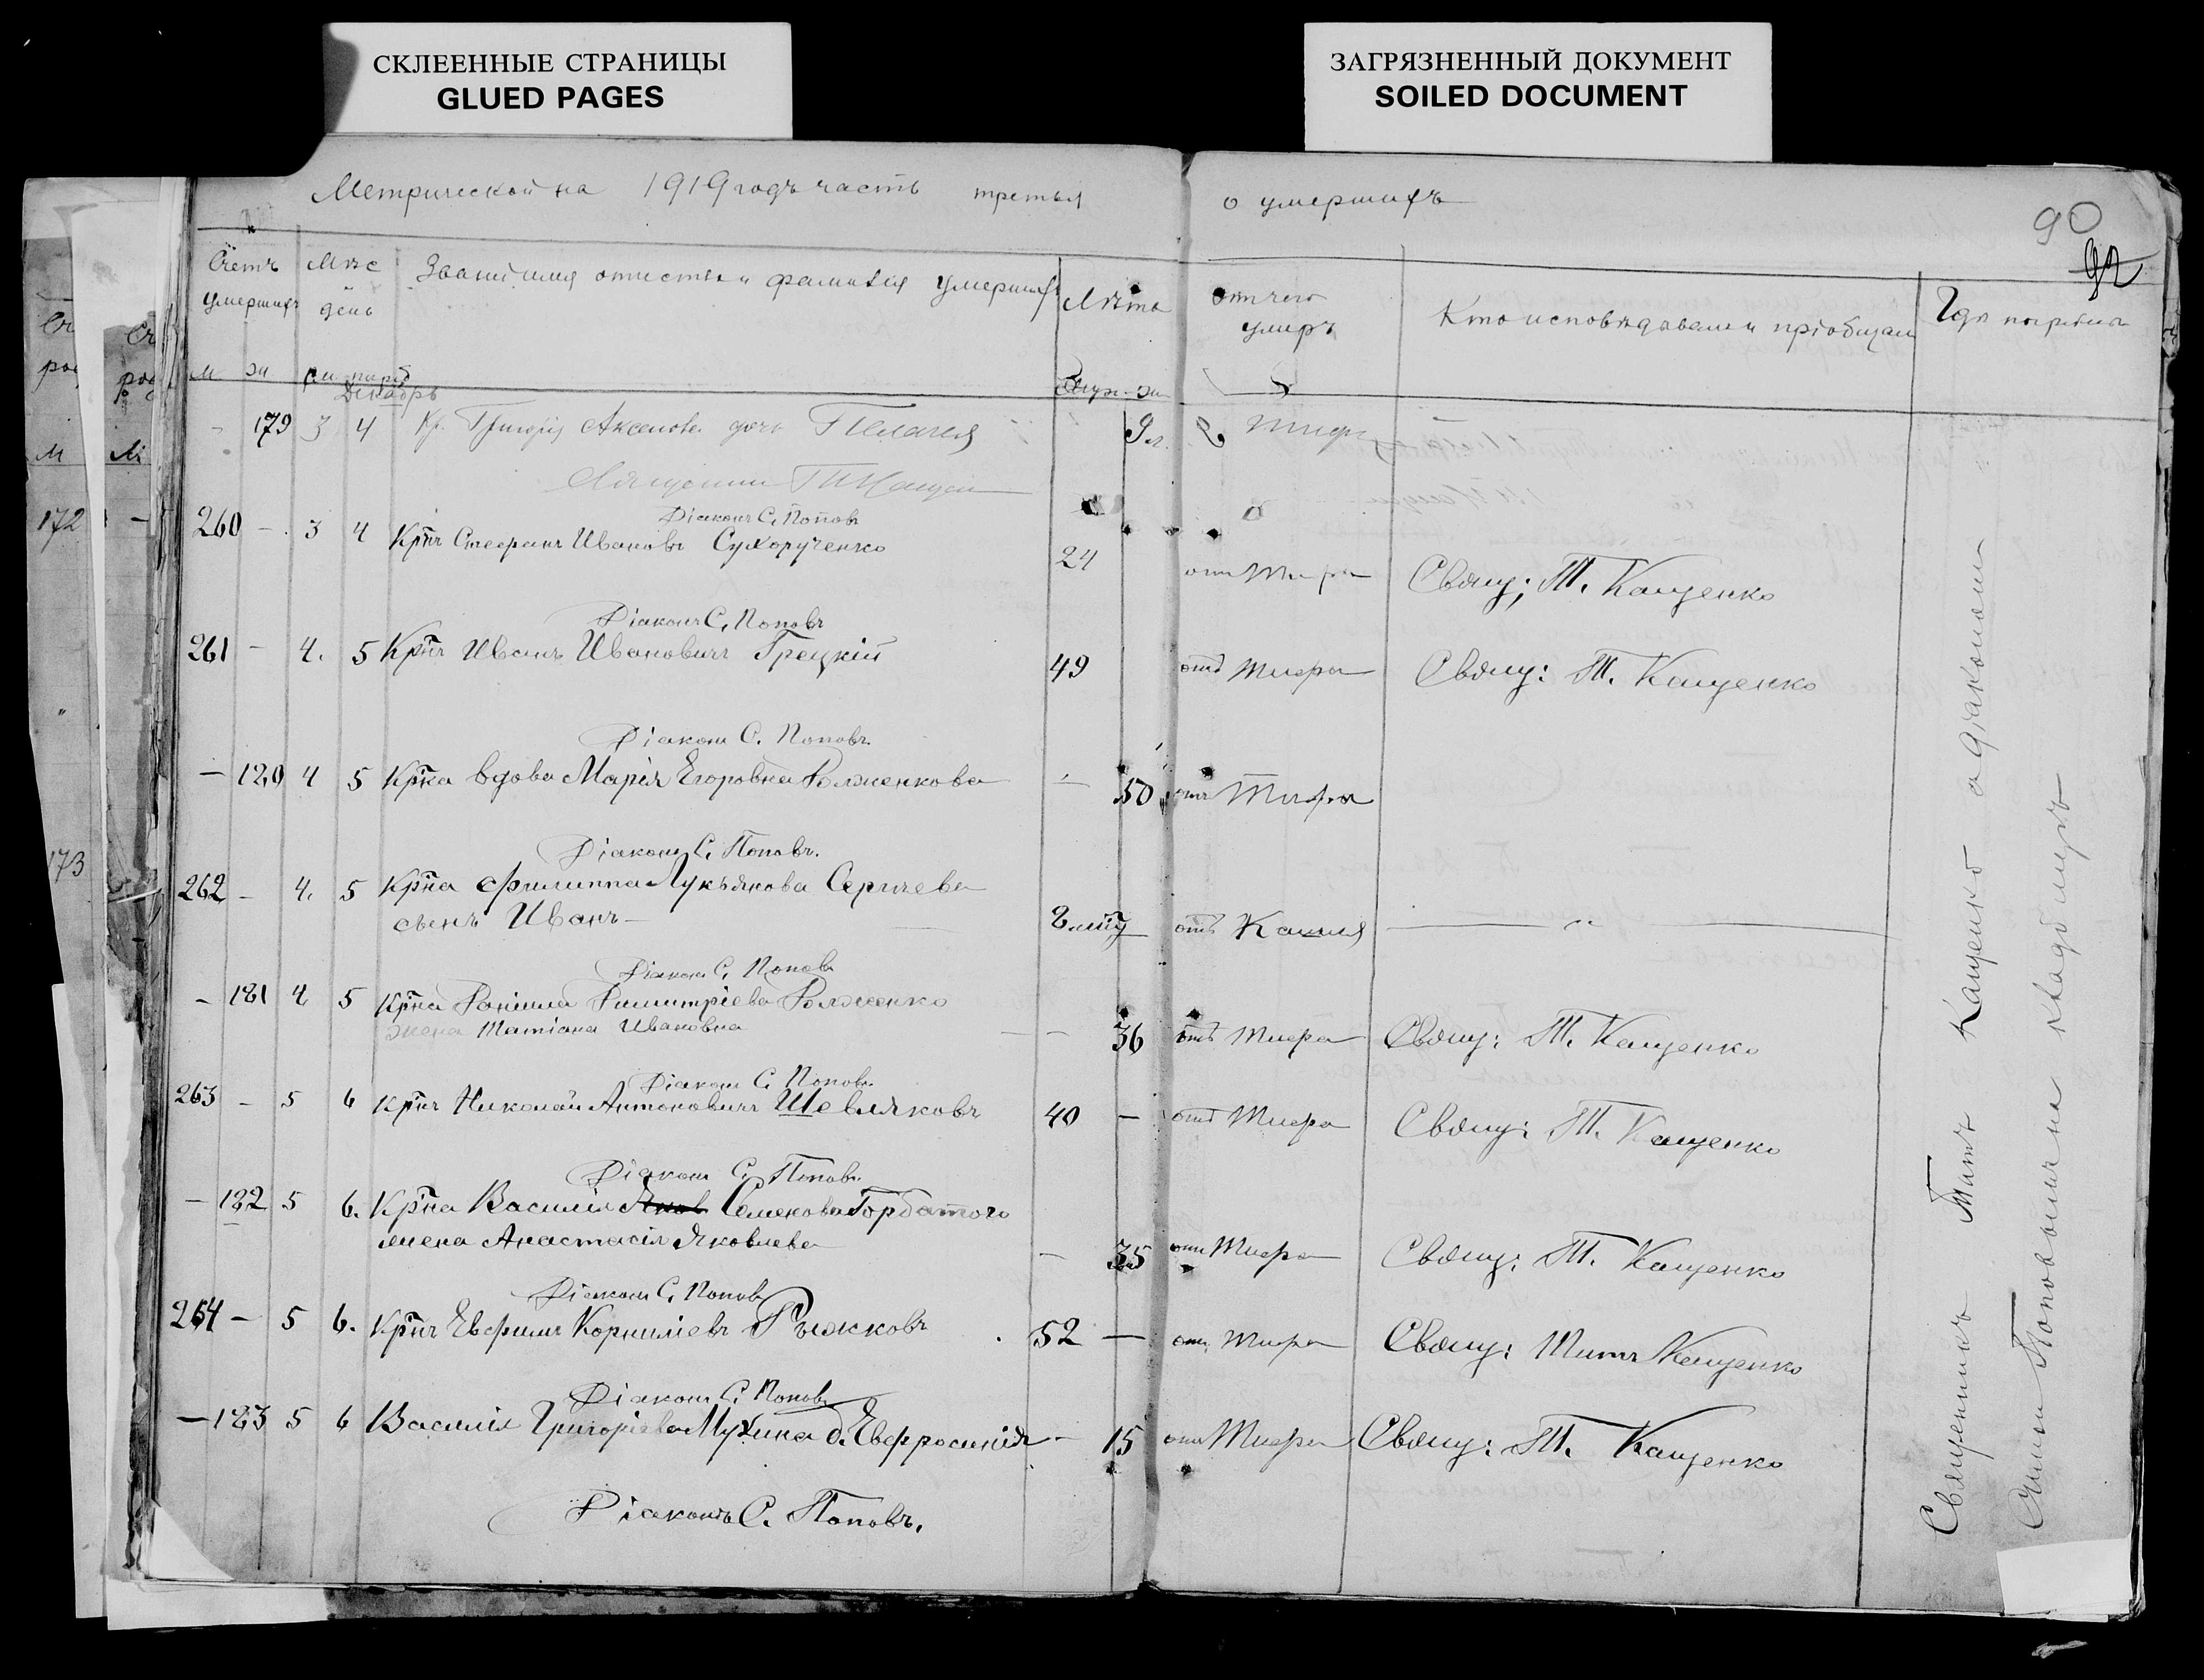 СКЛЕЕННЫЕ СТРАНИЦЫ
GLUED PAGES
ЗАГРЯЗНЕННЫЙ ДОКУМЕНТ
SOILED DOCUMENT
Метрической на 1919 годъ часть третья о умершихъ
90
92
Счетъ умершихъ
Мѣс день
Званіе имя отчество и фамилія умерших
Лѣта
отчего умеръ
Кто исповѣдавали и пріобщал
Гдѣ погребены
м ж
Декабрь
муж. ж
- 179 3 4 Кр. Григорія Аксенова дочь Пелагея 9 л. тифа
Діаконъ С. Поповъ
260 - 3 4 Крнъ Стефанъ Ивановъ Сухорученко 24 отъ Тифа Свящ: Т. Кащенко
Діаконъ С. Поповъ
261 - 4. 5 Крнъ Иванъ Ивановичъ Грецкій 49 отъ тифа Свящ: Т. Кащенко
Діаконъ С. Поповъ
- 180 4 5 Крнка вдова Марія Егоровна Волженкова - 50 отъ Тифа
Діаконъ С. Поповъ.
262 - 4. 5 Крнна Филиппа Лукьянова Сергѣева
сынъ Иванъ - отъ Кашля - " -
Діаконъ С. Поповъ
- 181 4 5 Крнна
жена Татіана Ивановна - 36 отъ Тифа Свящ: Т. Кащенко
Діаконъ С. Поповъ
263 - 5 6 Крнъ Николай Антоновичъ Шевляковъ 40 - отъ Тифа Свящ: Т. Кащенко
Діаконъ С. Поповъ
- 182 5 6. Крнна Василія Яков Семенова Горбатого
жена Анастасія Яковлева - 35 отъ Тифа Свящ: Т. Кащенко
Діаконъ С. Поповъ
264 - 5 6. Крнъ Евфимъ Корниліевъ Рыжковъ 52 - отъ Тифа Свящ: Титъ Кащенко
Діаконъ С. Поповъ
- 183 5 6 Василія Григорьева Мухина д. Евфросинія - 15 отъ Тифа Свящ: Т. Кащенко
Діаконъ С. Поповъ.
Священникъ Титъ Кащенко с діакономъ
Поповымъ на кладбищѣ
172
173